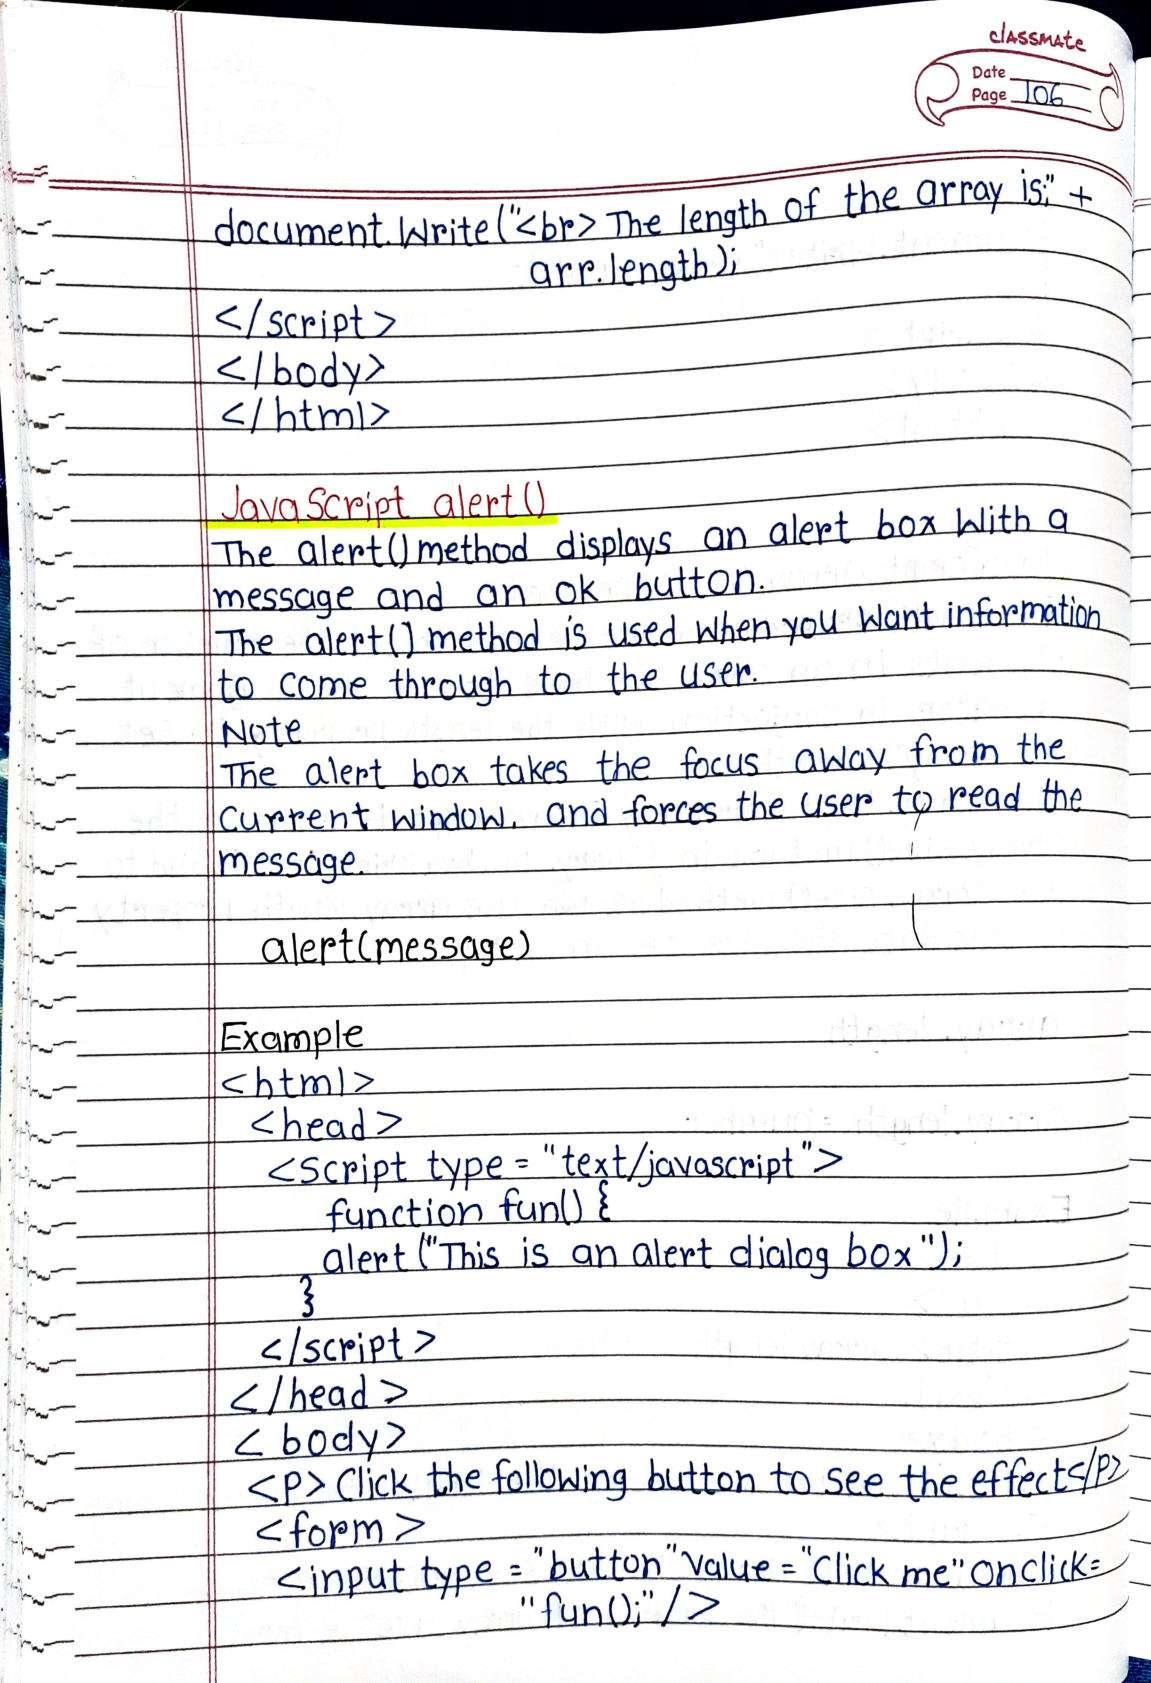 classmate
Date
Page 106
document.Write("<br> The length of the array is:" +
arr.length);
</script>
</body>
</html>
JavaScript alert()
The alert() method displays an alert box With a
message and an ok button.
The alert() method is used When you Want information
to come through to the user.
Note
The alert box takes the focus away from the
current window, and forces the user to read the
message.
alert(message)
Example
<html>
<head>
<script type = "text/javascript">
function fun() {
alert ("This is an alert dialog box");
}
</script>
</head>
<body>
<p> Click the following button to see the effect</p>
<form>
<input type = "button" value = "Click me" onclick=
"fun();"/>